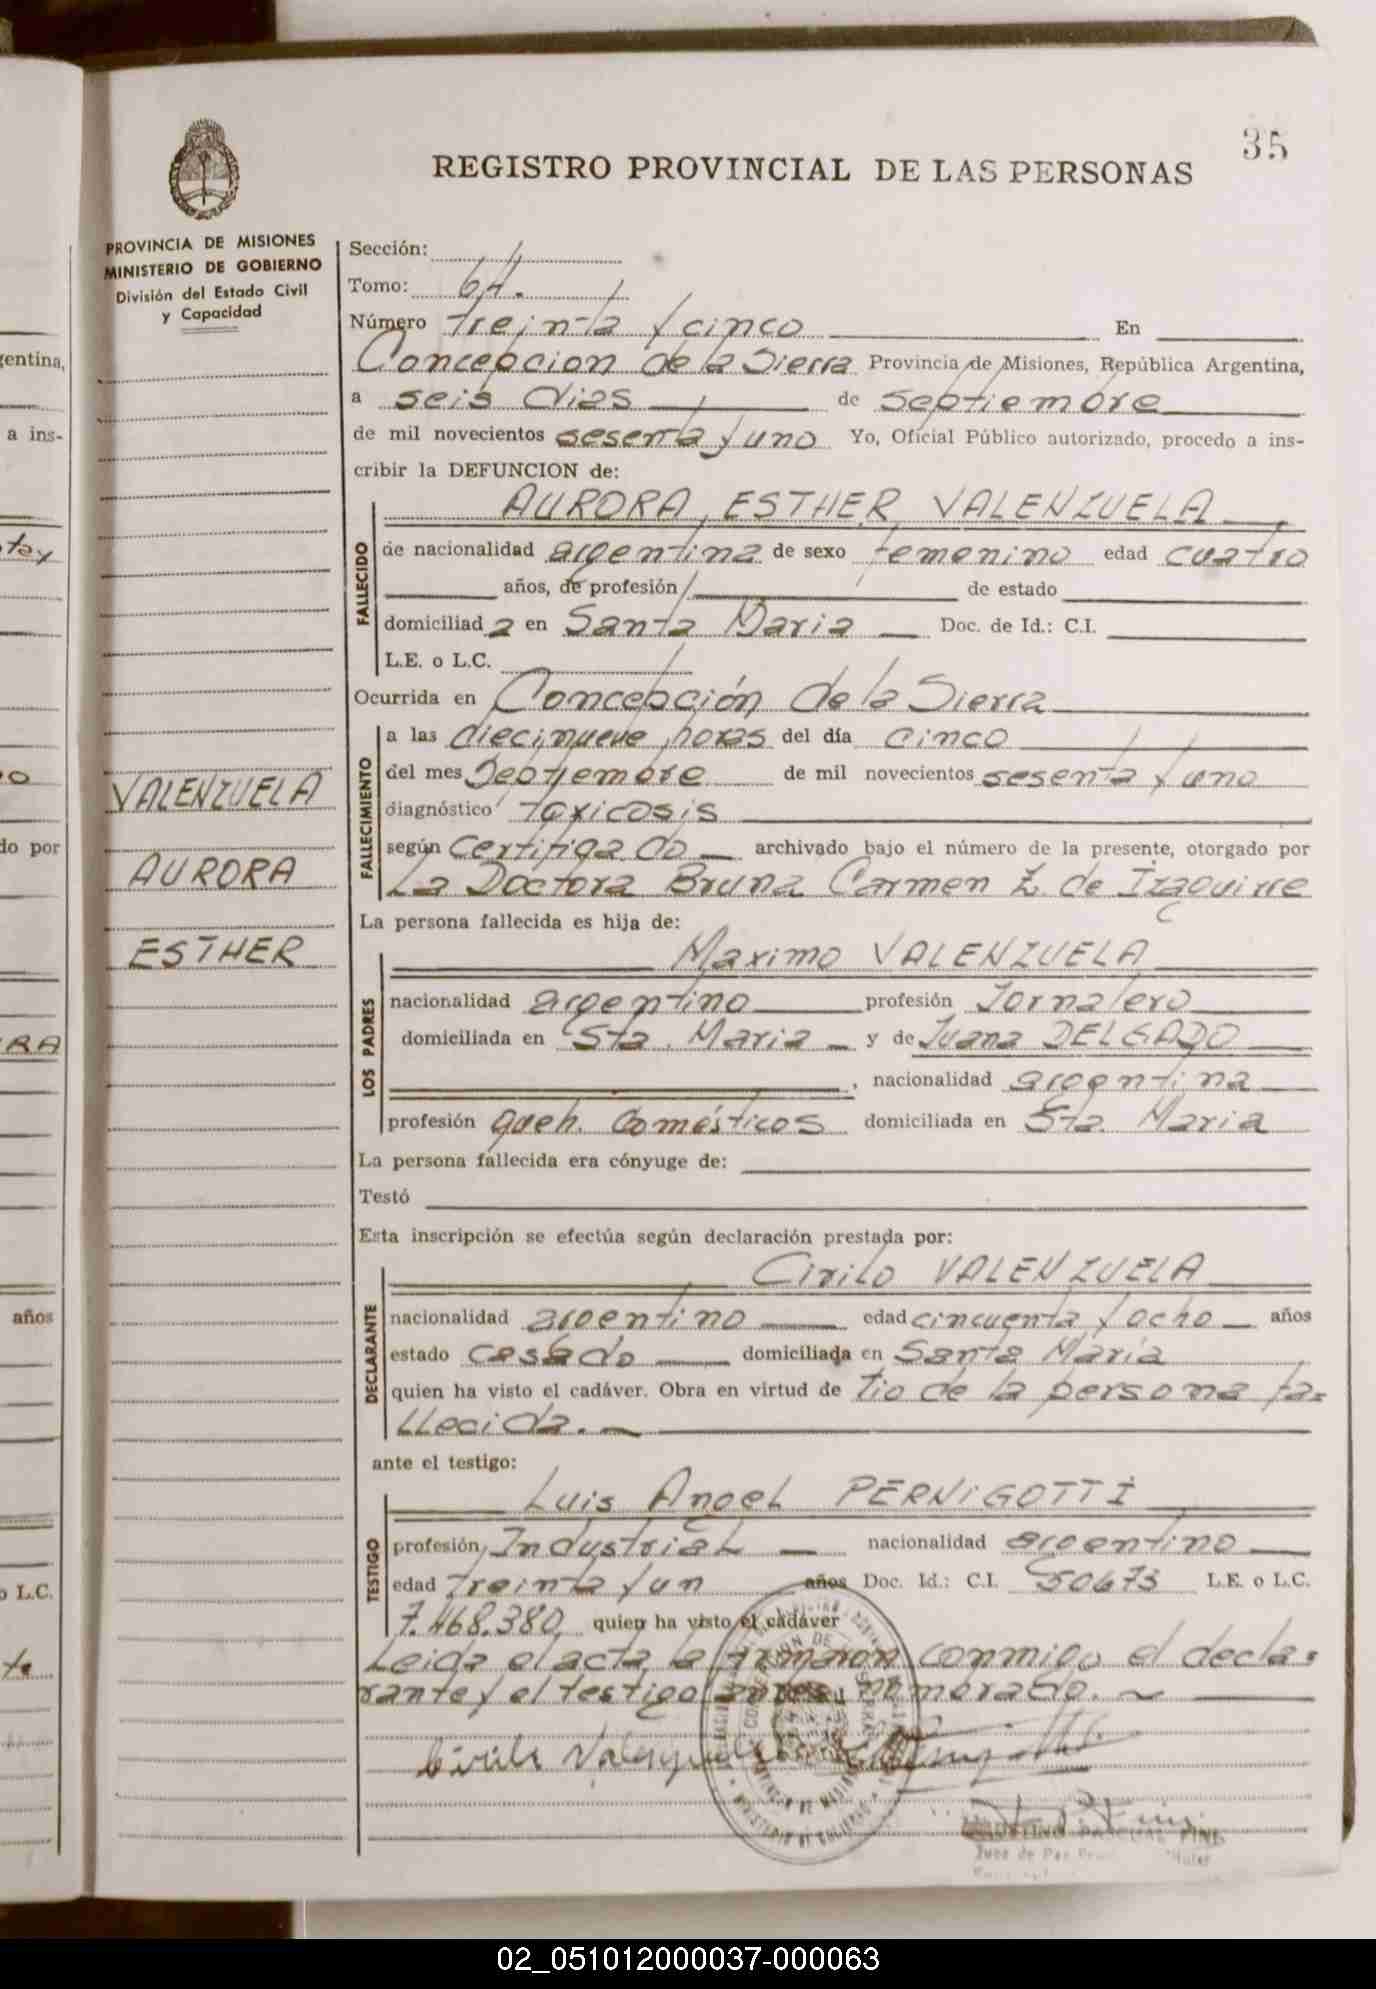 35
REGISTRO PROVINCIAL DE LAS PERSONAS
PROVINCIA DE MISIONES
MINISTERIO DE GOBIERNO
División del Estado Civil
y Capacidad
Sección:
Tomo: 61.
Número treinta y cinco En
Concepcion de la Sierra Provincia de Misiones, República Argentina,
a seis dias de septiembre
de mil novecientos sesenta y uno Yo, Oficial Público autorizado, procedo a ins-
cribir la DEFUNCION de:
FALLECIDO
AURORA, ESTHER, VALENZUELA
de nacionalidad argentina de sexo femenino edad cuatro
años, de profesión de estado
domiciliada en Santa Maria Doc. de Id.: C.I.
L.E. o L.C.
Ocurrida en Concepción de la Sierra
FALLECIMIENTO
a las diecinueve horas del día cinco
del mes Septiembre de mil novecientos sesenta y uno
diagnóstico toxicosis
según certificado archivado bajo el número de la presente, otorgado por
La Doctora Bruna Carmen Z. de Izaguirre
VALENZUELA
AURORA
ESTHER
La persona fallecida es hija de:
LOS PADRES
Maximo VALENZUELA
nacionalidad argentino profesión Jornalero
domiciliada en Sta. Maria y de Juana DELGADO
, nacionalidad argentina
profesión queh. Domésticos domiciliada en Sta. Maria
La persona fallecida era cónyuge de:
Testó
Esta inscripción se efectúa según declaración prestada por:
DECLARANTE
Cirilo VALENZUELA
nacionalidad argentino edad cincuenta y ocho años
estado casado domiciliada en Santa Maria
quien ha visto el cadáver. Obra en virtud de tio de la persona fa-
llecida.
ante el testigo:
TESTIGO
Luis Angel PERNIGOTTI
profesión Industrial nacionalidad argentino
edad treinta y un años Doc. Id.: C.I. 50673 L.E. o L.C.
7.468.380 quien ha visto el cadáver
Leida el acta la firmaron conmigo el decla-
rante y el testigo antes nombrado.
gentina,
a ins-
do por
RA
años
o L.C.
02_051012000037-000063